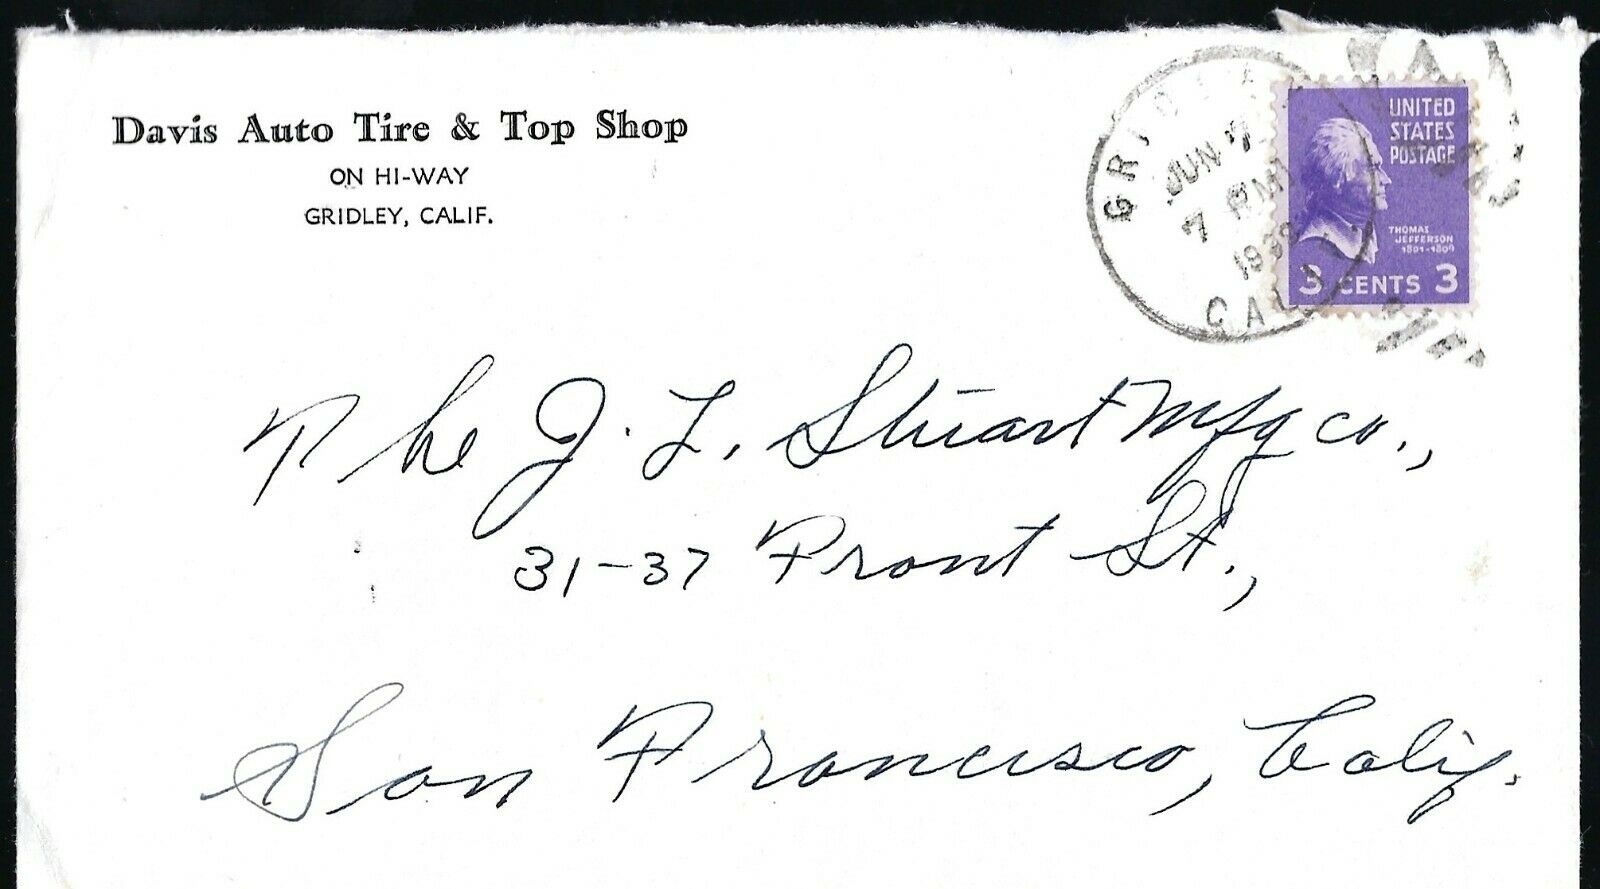 Davis Auto Tire & Top Shop
ON HI-WAY
GRIDLEY, CALIF.
GRIDLEY
JUN 7
7 PM
CAL
UNITED
STATES
POSTAGE
THOMAS
JEFFERSON
1801-1809
3 CENTS 3
The J. L. Stuart Mfg Co.,
31-37 Front St.,
San Francisco, Calif.